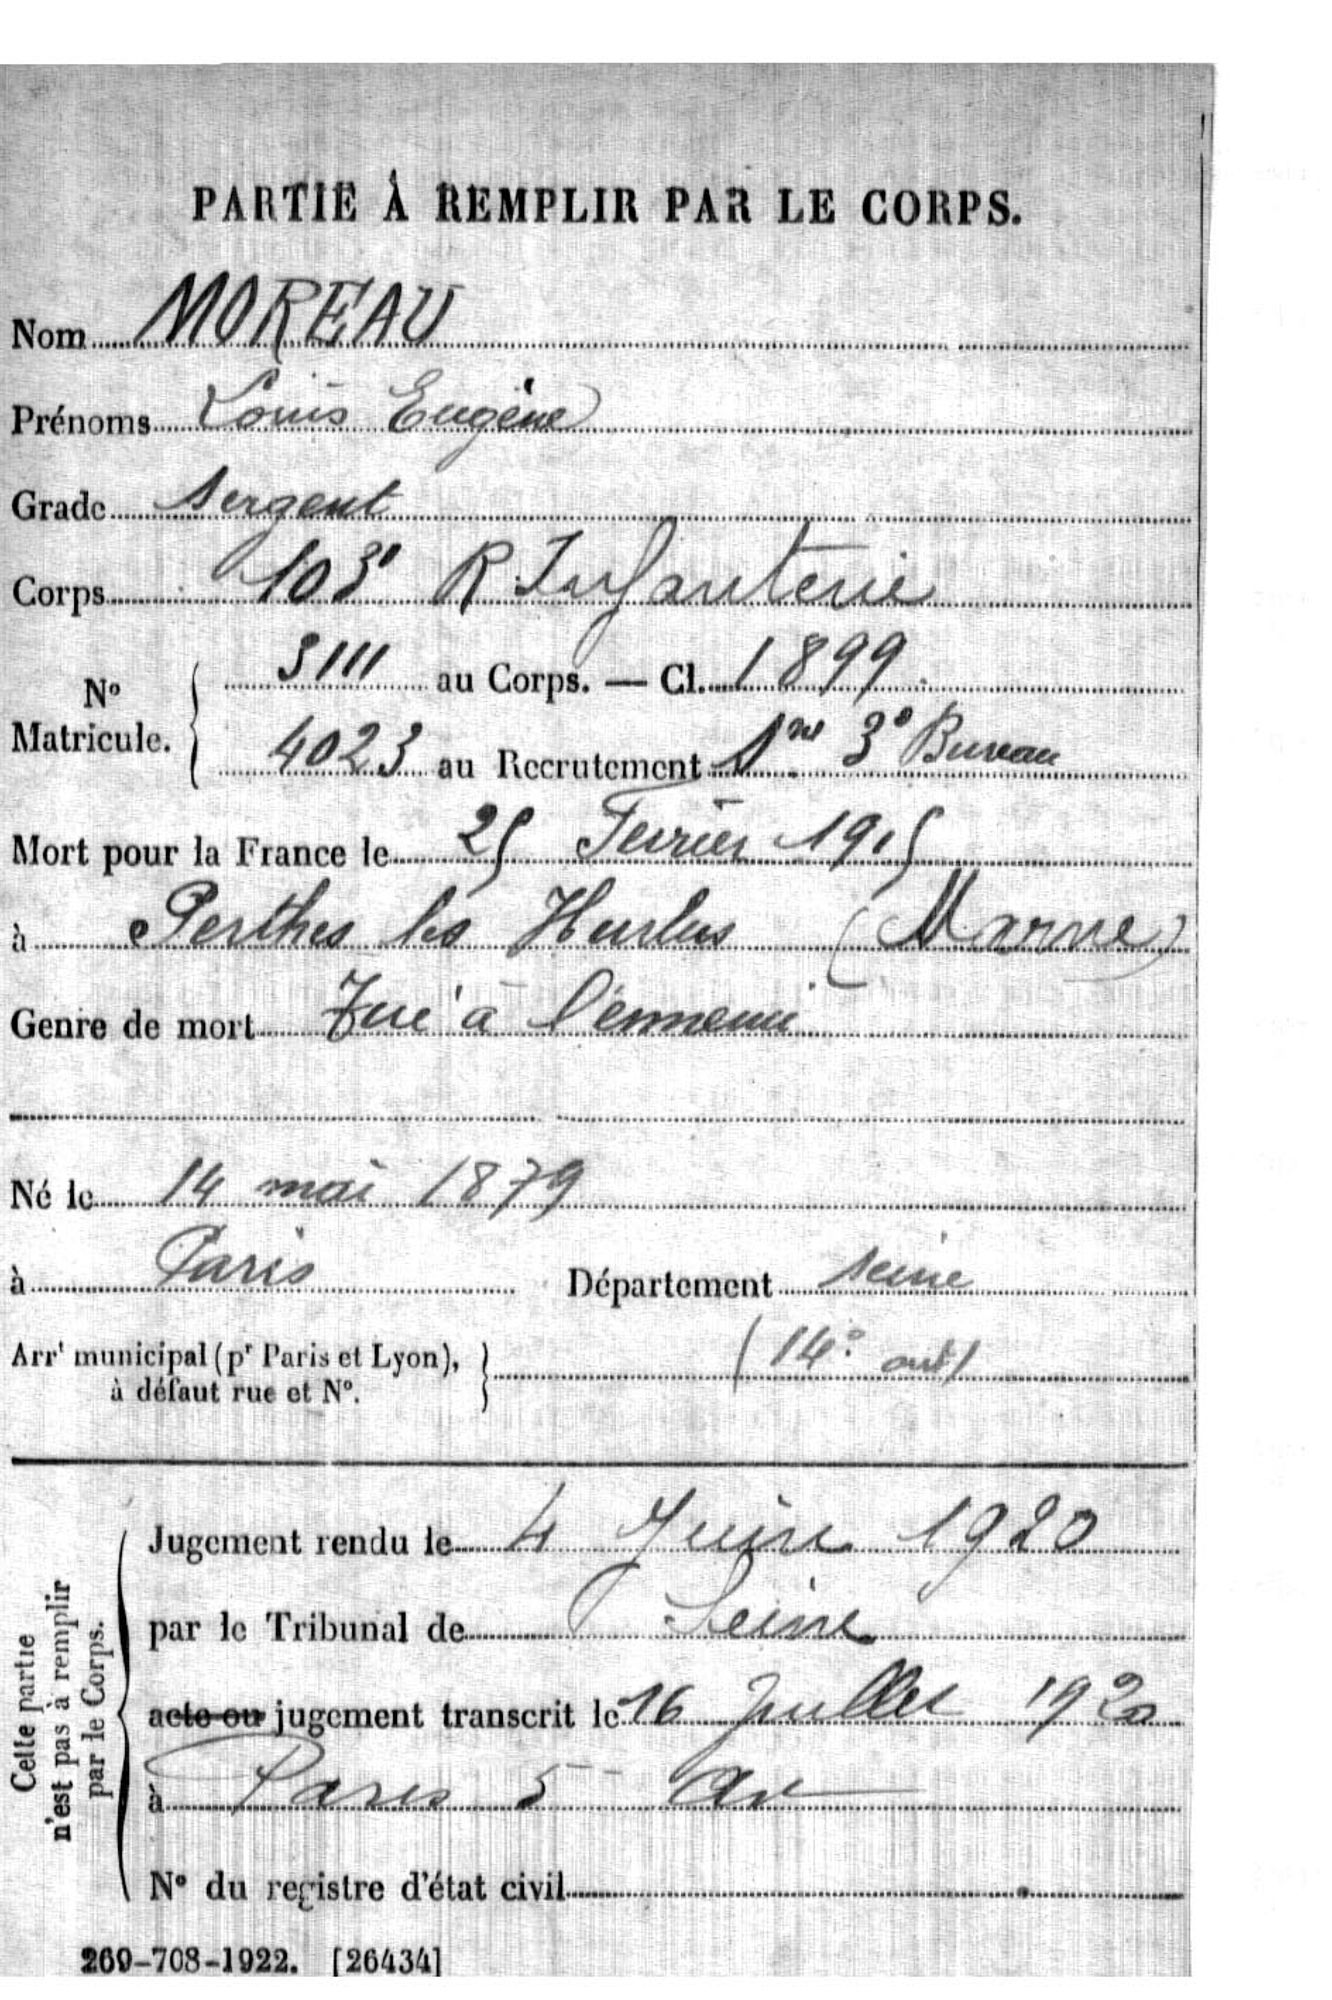 PARTIE À REMPLIR PAR LE CORPS.
Nom MOREAU
Prénoms Louis Eugène
Grade Sergent
Corps 103e R Infanterie
No Matricule. 3111 au Corps. — Cl. 1899
4023 au Recrutement 3e Bureau
Mort pour la France le 25 Fevrier 1915
à Perthes les Hurlus (Marne)
Genre de mort Tué à l'ennemi
Né le 14 mai 1879
à Paris Département Seine
Arrt municipal (pr Paris et Lyon), à défaut rue et No. (14e arrt)
Cette partie n'est pas à remplir par le Corps.
Jugement rendu le 4 Juin 1920
par le Tribunal de Seine
acte ou jugement transcrit le 16 Juillet 1920
à Paris 5e Ar
No du registre d'état civil
269-708-1922. [26434]